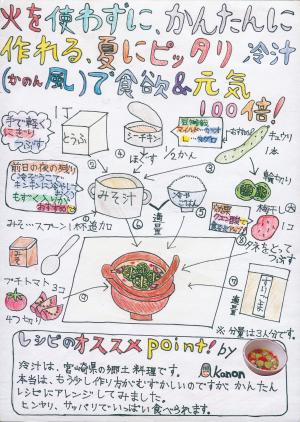 火を使わずに、かんたんに
作れる、夏にピッタリ 冷汁
(かのん風)で食欲&元気
100倍!
手で軽く
にぎり
つぶす
1丁
とうふ
シーチキン
ほぐす
1/2かん
キュウリ
1本
輪切り
前日の夜の残り
みそ汁
冷や
ごはん
適量
梅干し
1コ
タネをとって
つぶす
みそ…スプーン1杯追加
みそ
プチトマト3コ
4つ切り
すりごま
適量
※分量は3人分です。
レシピのオススメpoint! by
Kanon
冷汁は、宮崎県の郷土料理です。
本当は、もう少し作り方がむずかしいのですが、かんたん
レシピにアレンジしてみました。
ヒンヤリ、サッパリでいっぱい食べられます。